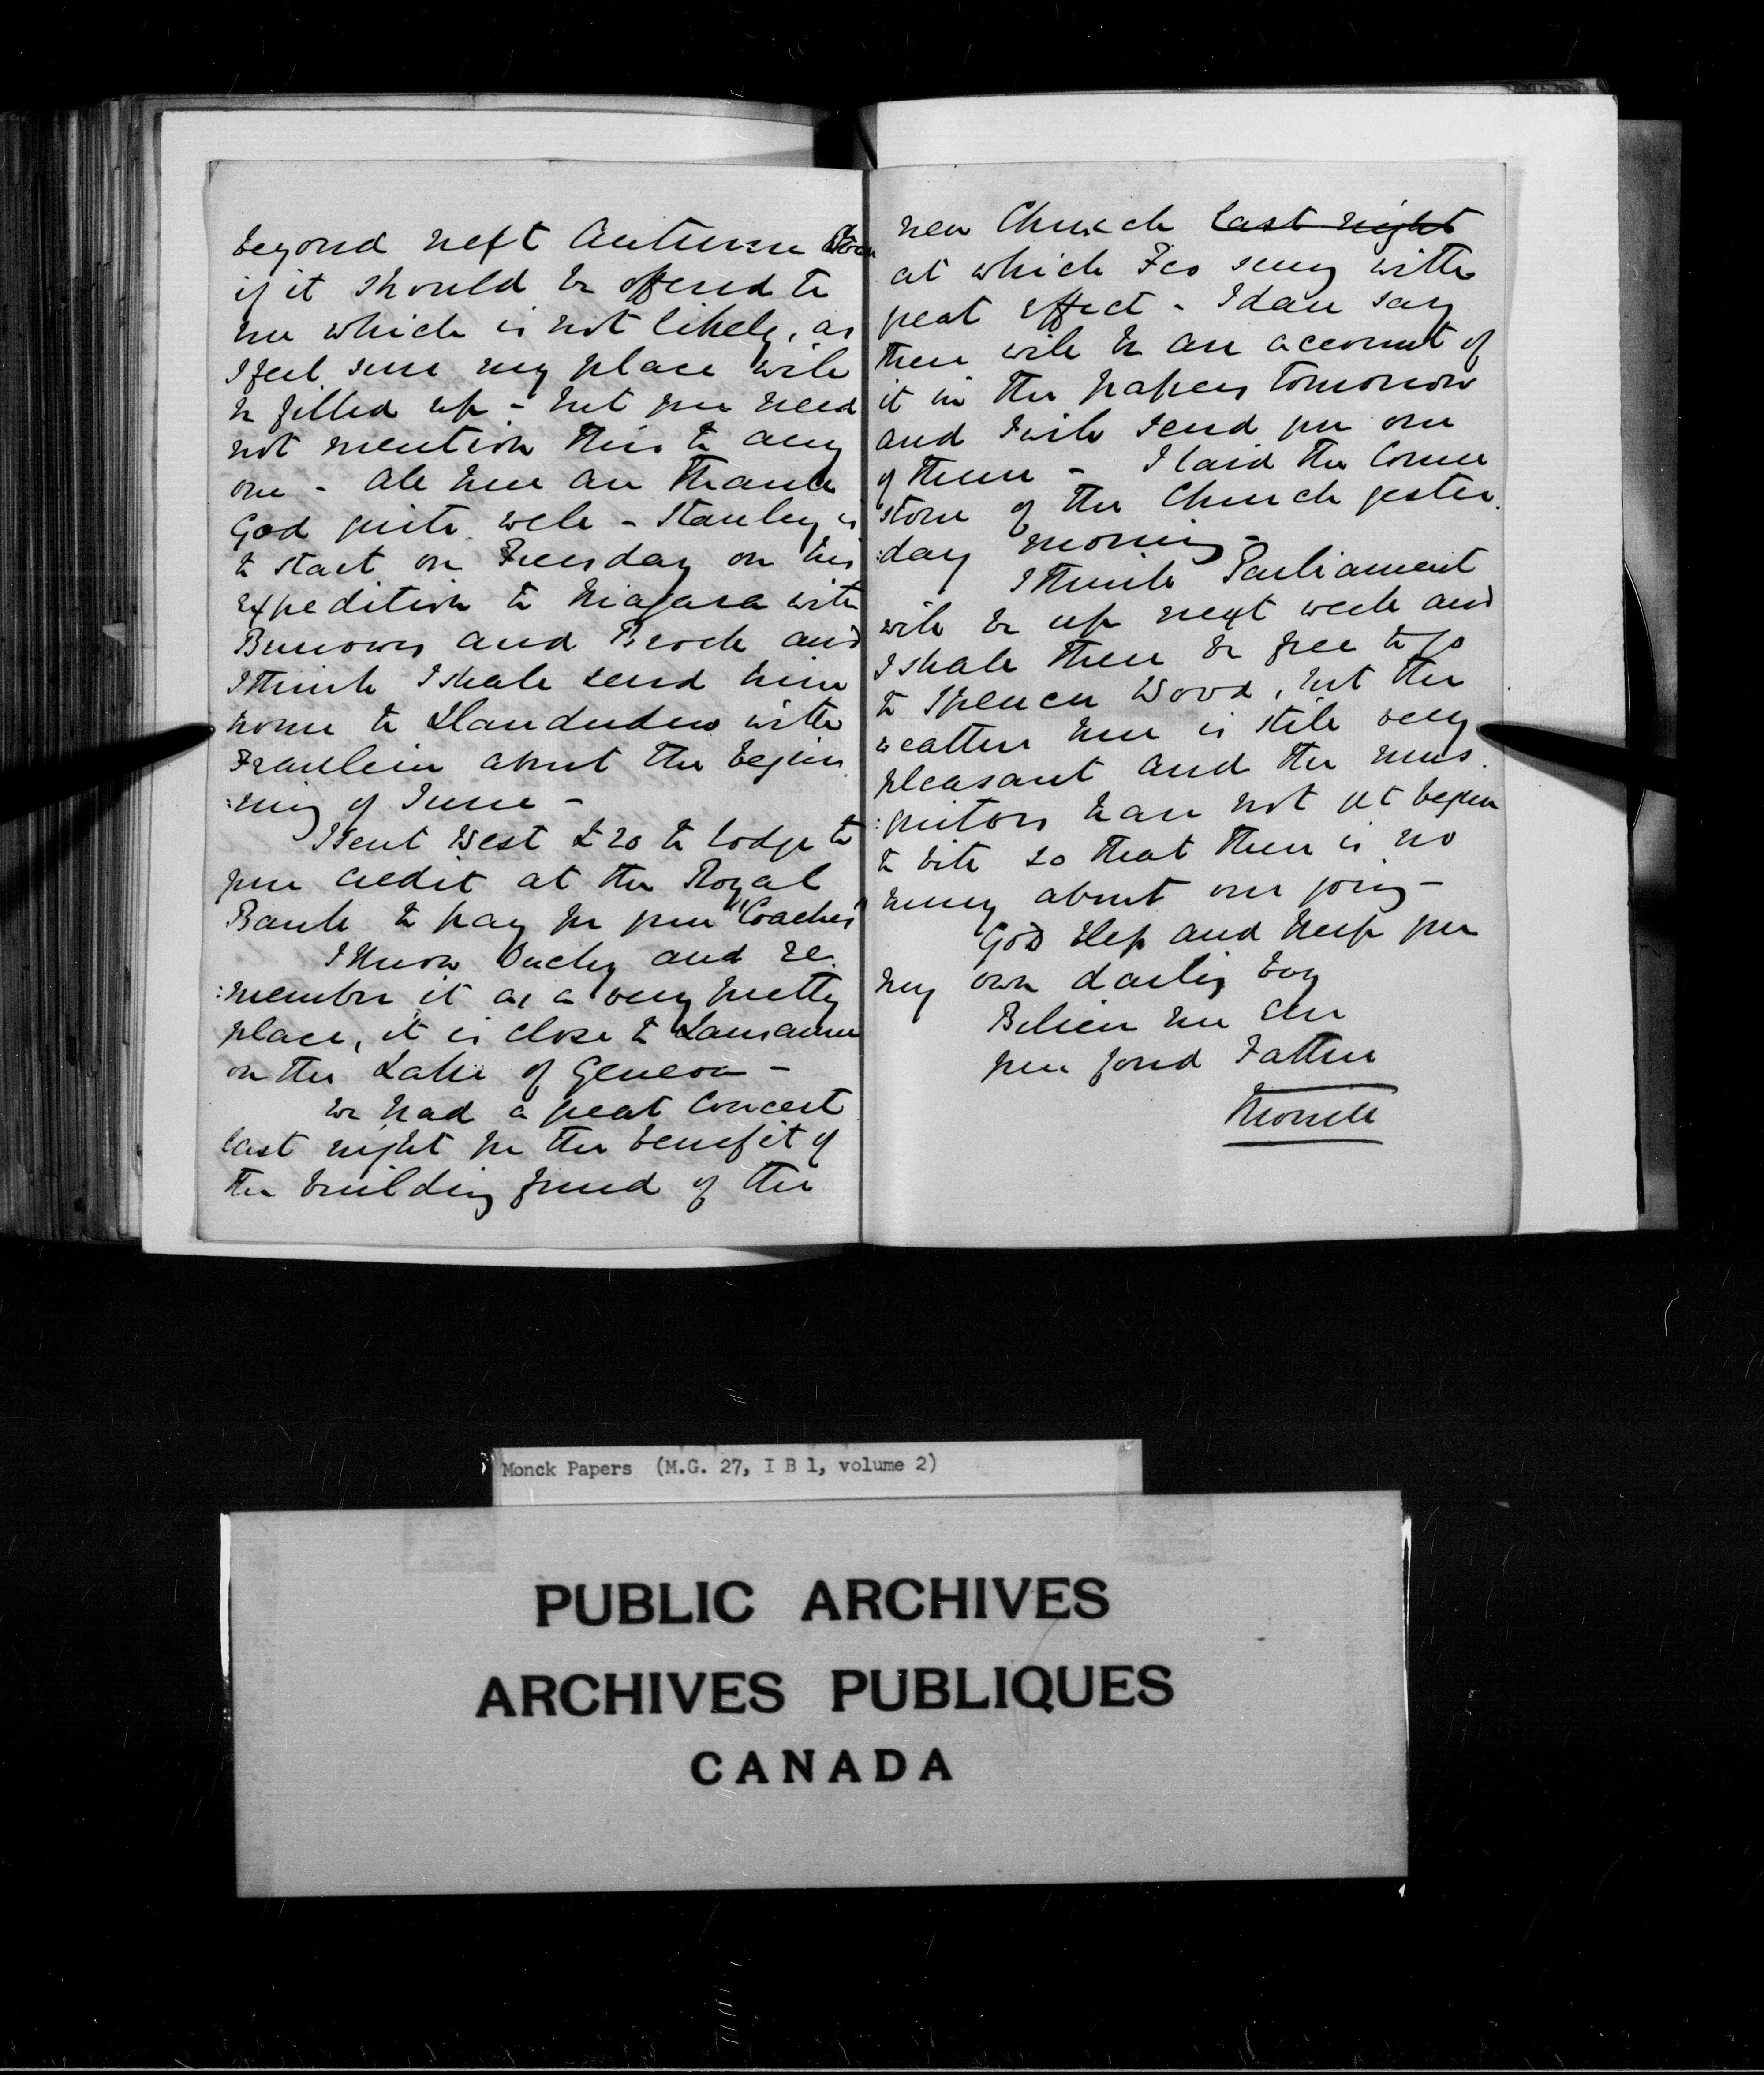 beyond next Autumn even
if it should be offered to
me which is not likely, as
I feel sure my place will
be filled up - but you need
not mention this to any
one - All here are thank
God quite well - Stanley is
to start on Tuesday on his
expedition to Niagara with
Burrowes and Brock and
I think I shall send him
home to Llandudno with
Fraulein about the begin
:ning of June -
I sent West £20 to lodge to
your credit at the Royal
Bank to pay for your "Coaches"
I know Ouchy and re
:member it as a very pretty
place, it is close to Lausanne
on the Lake of Geneva -
We had a great Concert
last night for the benefit of
the building fund of the
new Church last night
at which Feo sung with
great effect - I dare say
there will be an account of
it in the papers tomorrow
and I will send you one
of them - I laid the Corner
stone of the Church yester
:day morning -
I think Parliament
will be up next week and
I shall then be free to go
to Spencer Wood, but the
weather here is still very
pleasant and the mus
:quitoes have not yet begun
to bite so that there is no
hurry about our going -
God bless and keep you
my own darling boy
Believe me ever
your fond Father
Monck
Monck Papers (M.G. 27, I B 1, volume 2)
PUBLIC ARCHIVES
ARCHIVES PUBLIQUES
CANADA